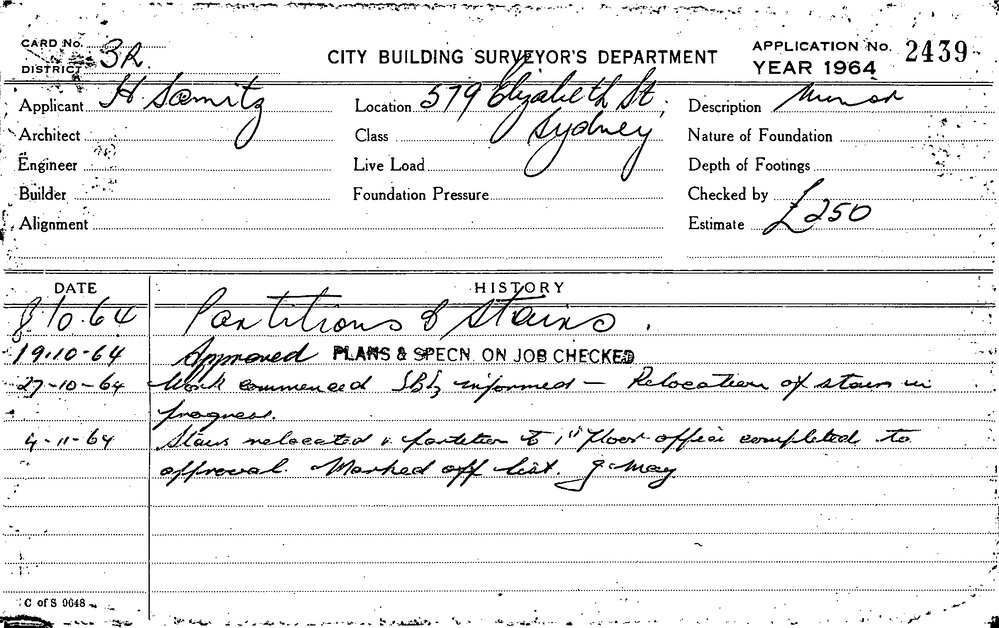 CARD No.
DISTRICT 3A.
CITY BUILDING SURVEYOR'S DEPARTMENT
APPLICATION No. 2439
YEAR 1964
Applicant H Samitz Location 579 Elizabeth St, Description Minor
Architect Class Sydney Nature of Foundation
Engineer Live Load Depth of Footings
Builder Foundation Pressure Checked by
Alignment Estimate £250
DATE HISTORY
8.10.64 Partitions & Stairs.
19.10-64 Approved PLANS & SPECN. ON JOB CHECKED
27-10-64 Work commenced informed - Relocation of stairs in
progress.
4-11-64 Stairs relocated & partition to 1st floor office completed to
approval. Marked off list. J. May.
C of S 0048